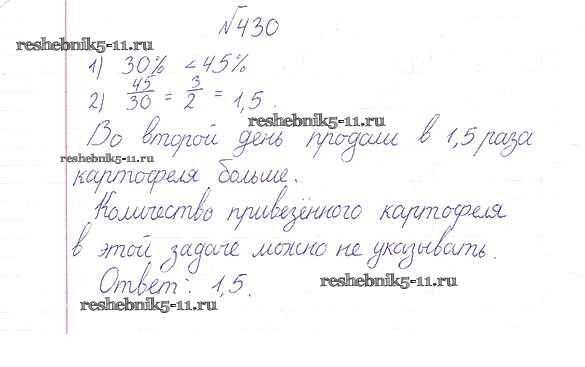 №430
reshebnik5-11.ru
1) 30% < 45%
2) 45/30 = 3/2 = 1,5.
reshebnik5-11.ru
Во второй день продали в 1,5 раза
reshebnik5-11.ru
картофеля больше.
Количество привезённого картофеля
в этой задаче можно не указывать.
Ответ: 1,5.
reshebnik5-11.ru
reshebnik5-11.ru